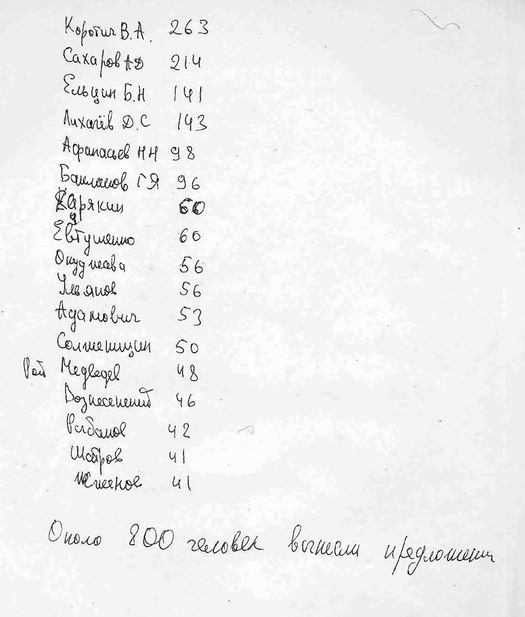 Коротич В.А. 263
Сахаров АД 214
Ельцин Б.Н 141
Лихачёв Д.С 143
Афанасьев НН 98
Бакланов ГЯ 96
Карякин 60
Евтушенко 60
Окуджава 56
Ульянов 56
Адамович 53
Солженицин 50
Рой Медведев 48
Вознесенский 46
Рыбаков 42
Шатров 41
41
Около 800 человек выслали предложения